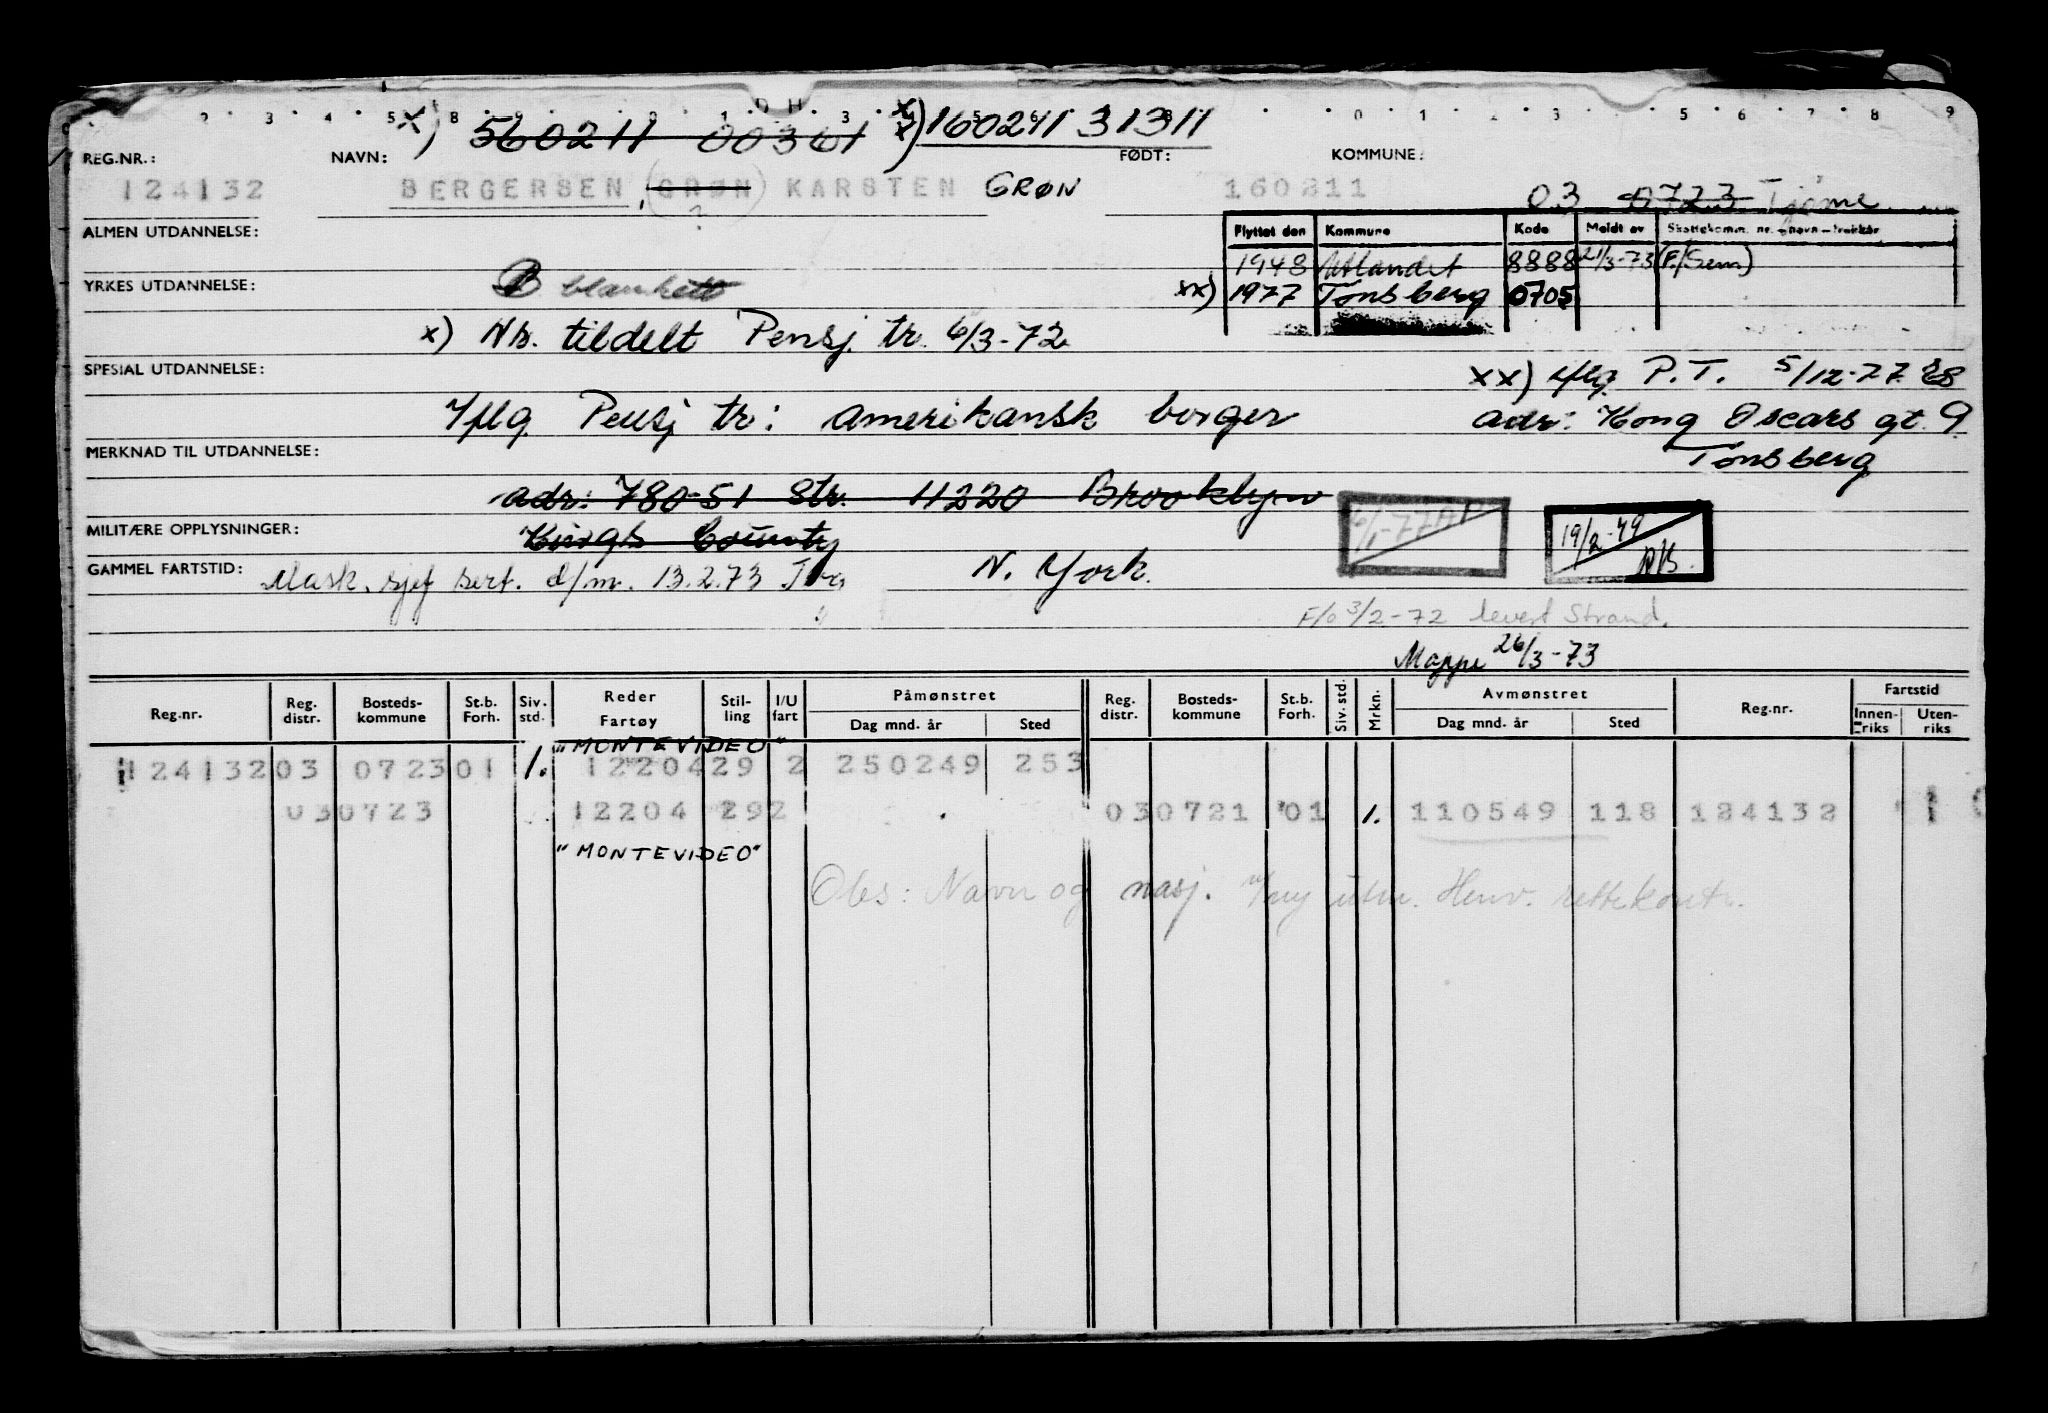 x) 560211 00361 xx) 160211 31311
REG.NR.: NAVN: FØDT: KOMMUNE:
124132 BERGERSEN, (GRØN) KARSTEN GRØN 160211 03 0723 Tjøme
?
ALMEN UTDANNELSE:
Flyttet den Kommune Kode Meldt av Skattekomm. nr. – navn – trekkår
1948 Utlandet 8888 21/3-73 (F./Sem)
YRKES UTDANNELSE: B blankett xx) 1977 Tønsberg 0705
x) Nr. tildelt Pensj. tr. 6/3-72
SPESIAL UTDANNELSE: xx) iflg. P.T. 5/12-77
Iflg. Pensj tr: amerikansk borger adr: Kong Oscars gt. 9
MERKNAD TIL UTDANNELSE: Tønsberg
adr: 780-51 Str. 11220 Brooklyn
MILITÆRE OPPLYSNINGER: Kings County 19/2-49
GAMMEL FARTSTID: Mask. sjef sert. d/m. 13.2.73 N. York.
F/o 3/2-72 levert Strand.
Mappe 26/3-73
Reg.nr. Reg. distr. Bosteds- kommune St.b. Forh. Siv. std. Reder Fartøy Stil- ling I/U fart Påmønstret Dag mnd. år Sted Reg. distr. Bosteds- kommune St.b. Forh. Siv. std. Mrkn. Avmønstret Dag mnd. år Sted Reg.nr. Fartstid Innen- riks Uten- riks
"MONTEVIDEO"
124132 03 0723 01 1. 12204 29 2 250249 253
030723 12204 292 030721 01 1. 110549 118 124132
"MONTEVIDEO"
Obs: Navn og nasj. v/ny utm. Henv. rettekontr.